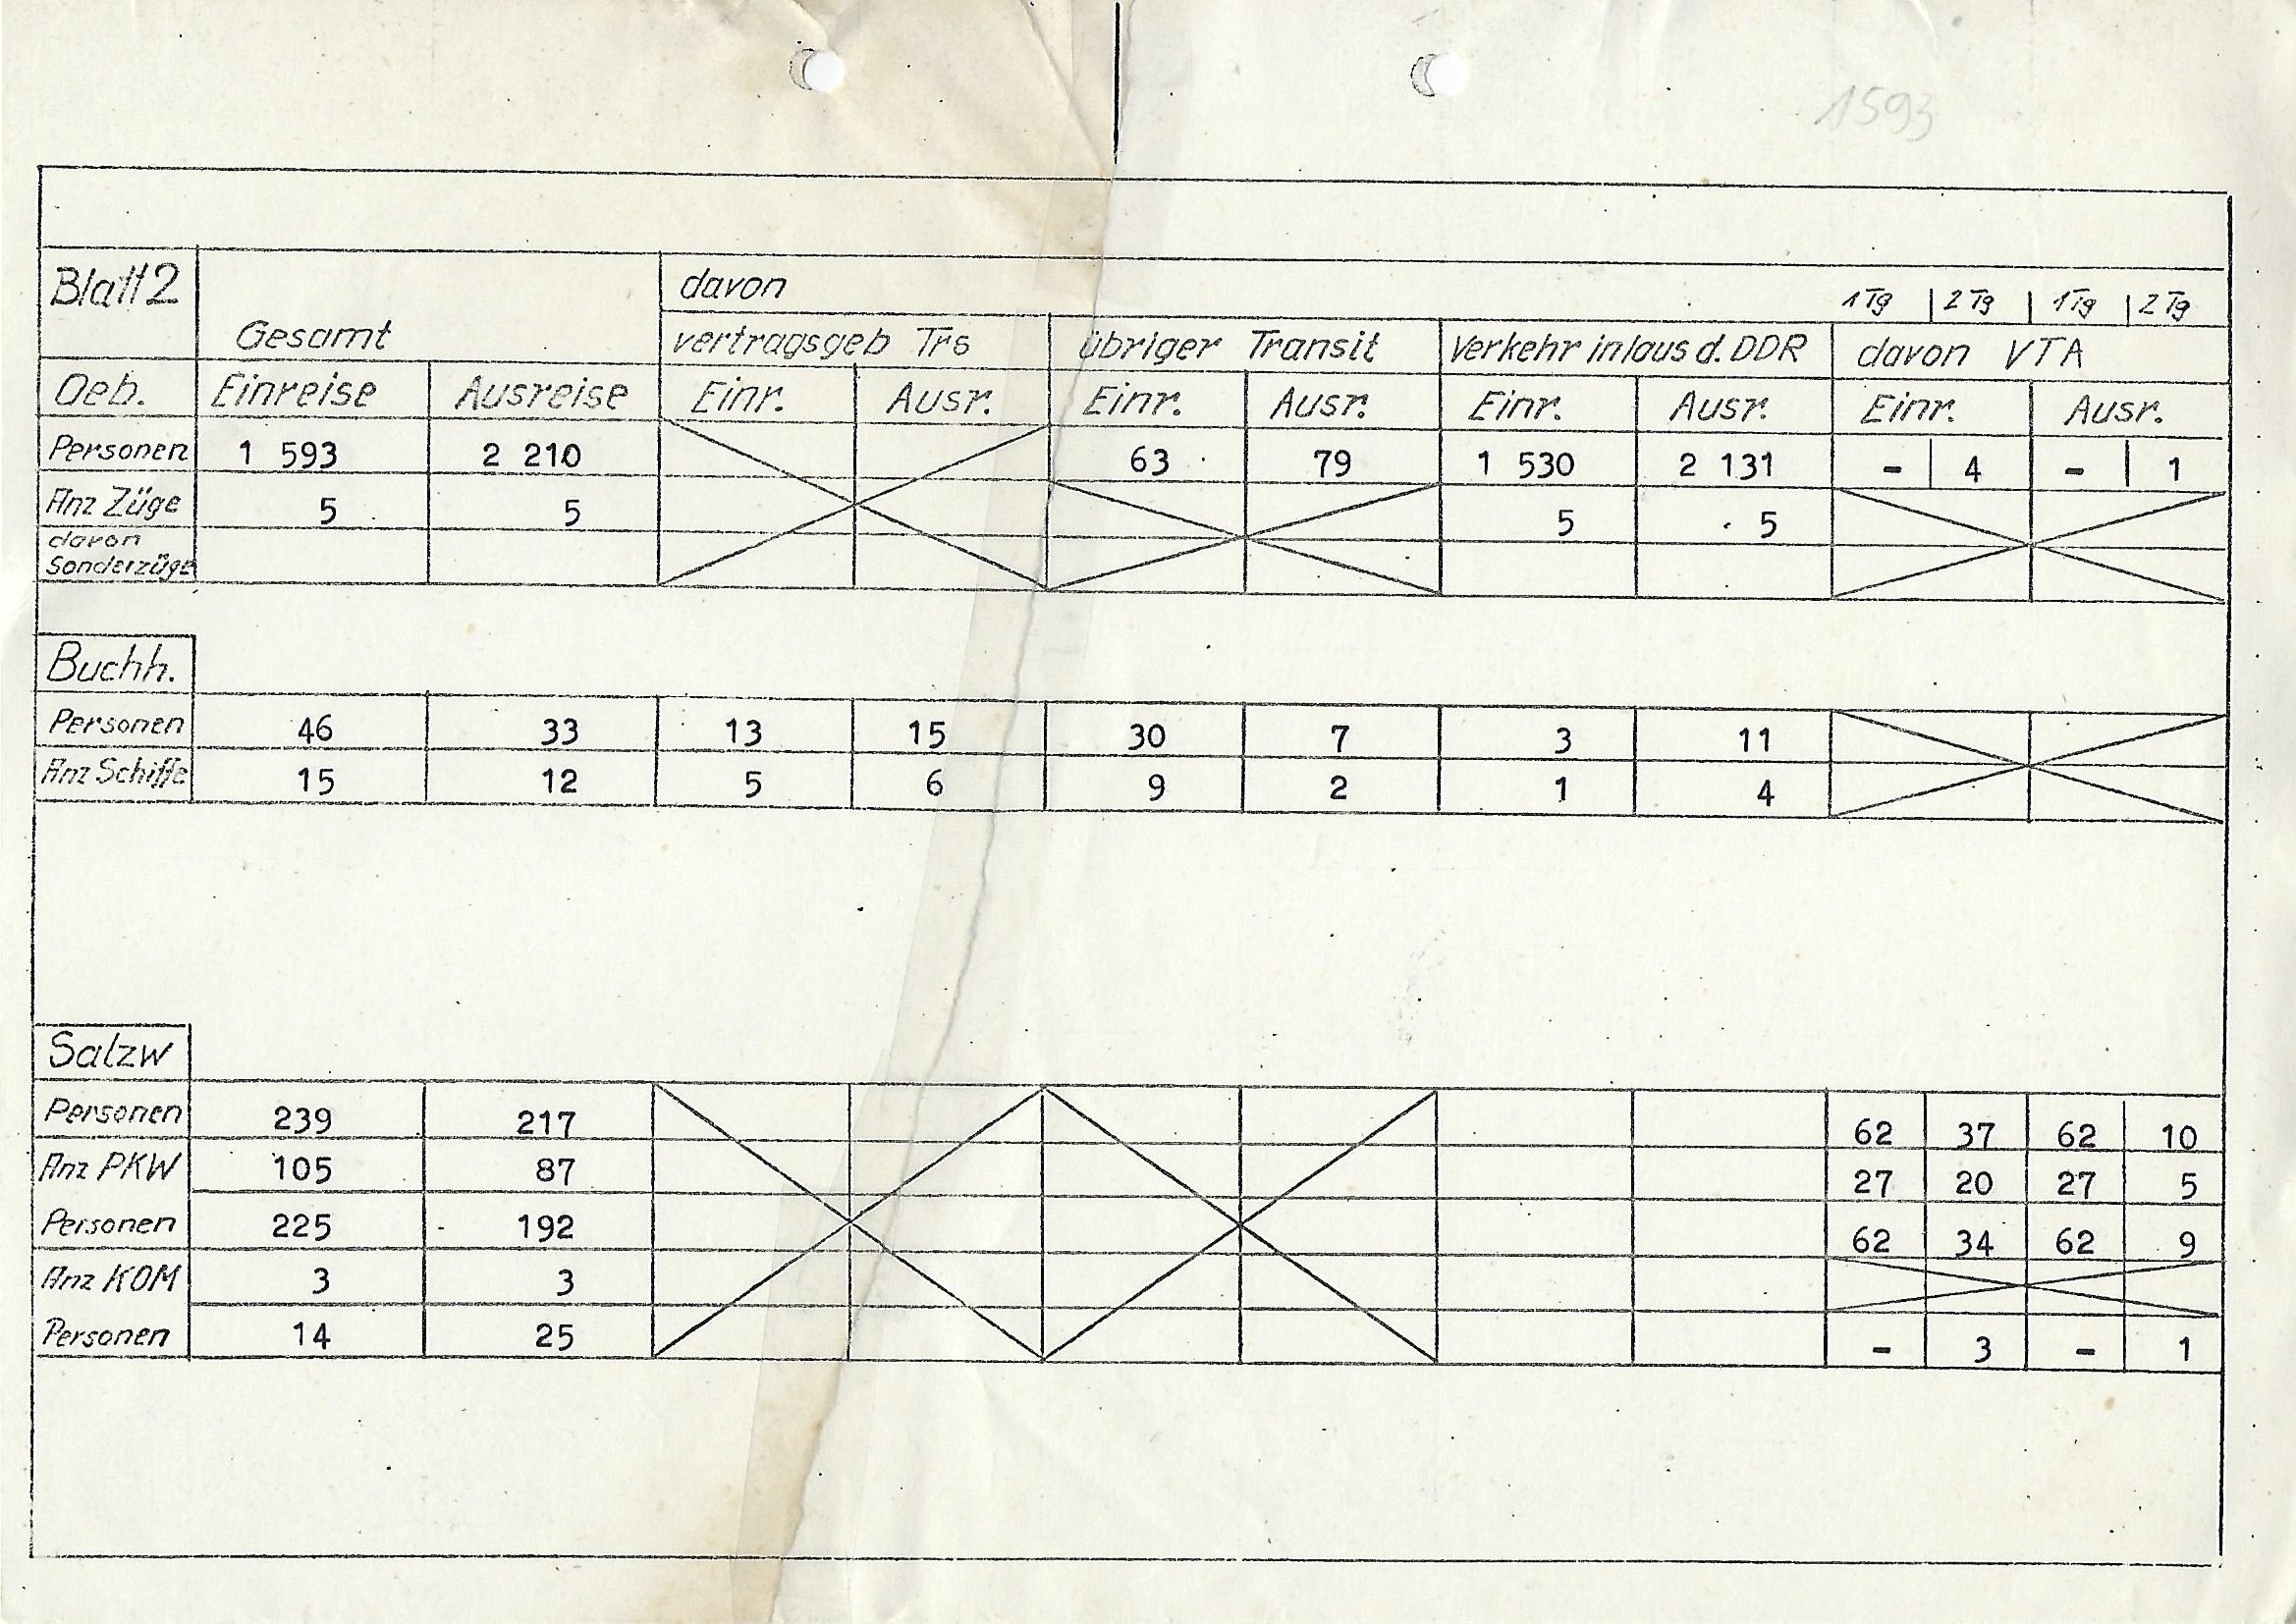 1593
davon
1 Tg | 2 Tg | 1 Tg | 2 Tg
Blatt 2 Gesamt vertragsgeb Trs übriger Transit Verkehr in/aus d. DDR davon VTA
Oeb. Einreise Ausreise Einr. Ausr. Einr. Ausr. Einr. Ausr. Einr. Ausr.
Personen 1 593 2 210 63 79 1 530 2 131 - 4 - 1
Anz Züge 5 5 5 5
davon
Sonderzüge
Buchh.
Personen 46 33 13 15 30 7 3 11
Anz Schiffe 15 12 5 6 9 2 1 4
Salzw
Personen 239 217 62 37 62 10
Anz PKW 105 87 27 20 27 5
Personen 225 192 62 34 62 9
Anz KOM 3 3
Personen 14 25 - 3 - 1